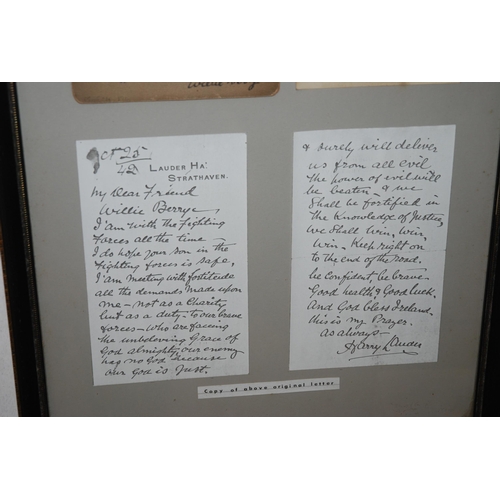 Oct 25/42
LAUDER HA'
STRATHAVEN.
My Dear Friend
Willie Berrye
I am with the Fighting
Forces all the time
I do hope your son in the
Fighting forces is safe,
I am meeting with fortitude
all the demands made upon
me – not as a Charity
but as a duty – to our brave
forces – who are facing
the unbelieving Grace of
God almighty, our enemy
has no God because
our God is Just.
& surely will deliver
us from all evil
the power of evil will
be beaten & we
shall be fortified in
the Knowledge of Justice,
We shall win, win,
win – Keep right on
to the end of the road.
be confident, be brave
Good health & Good luck.
And God bless Ireland.
this is my Prayer.
As always –
Harry Lauder
Copy of above original letter